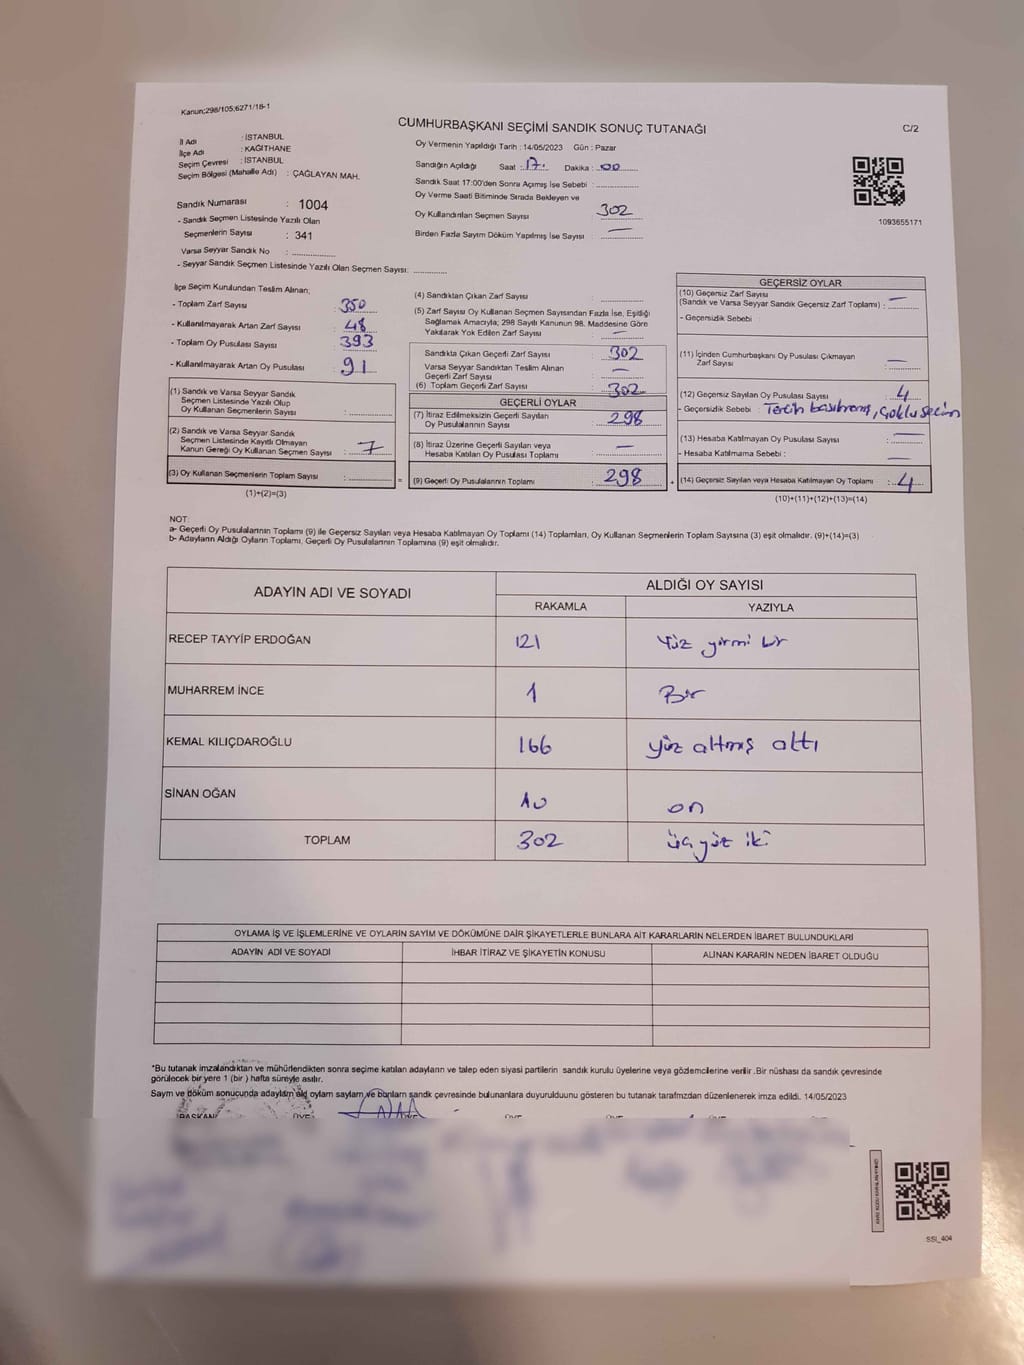 Kanun:298/105;6271/18-1
CUMHURBAŞKANI SEÇİMİ SANDIK SONUÇ TUTANAĞI
C/2
İl Adı : İSTANBUL
İlçe Adı : KAĞITHANE
Seçim Çevresi : İSTANBUL
Seçim Bölgesi (Mahalle Adı) : ÇAĞLAYAN MAH.
Sandık Numarası : 1004
- Sandık Seçmen Listesinde Yazılı Olan
Seçmenlerin Sayısı : 341
Varsa Seyyar Sandık No :
- Seyyar Sandık Seçmen Listesinde Yazılı Olan Seçmen Sayısı:
Oy Vermenin Yapıldığı Tarih : 14/05/2023 Gün : Pazar
Sandığın Açıldığı Saat : 17. Dakika : 00
Sandık Saat 17:00'den Sonra Açımış İse Sebebi :
Oy Verme Saati Bitiminde Sırada Bekleyen ve
Oy Kullandırılan Seçmen Sayısı 302
Birden Fazla Sayım Döküm Yapılmış İse Sayısı : —
1093655171
İlçe Seçim Kurulundan Teslim Alınan;
- Toplam Zarf Sayısı : 350
- Kullanılmayarak Artan Zarf Sayısı : 48
- Toplam Oy Pusulası Sayısı : 393
- Kullanılmayarak Artan Oy Pusulası : 91
(1) Sandık ve Varsa Seyyar Sandık
Seçmen Listesinde Yazılı Olup
Oy Kullanan Seçmenlerin Sayısı :
(2) Sandık ve Varsa Seyyar Sandık
Seçmen Listesinde Kayıtlı Olmayan
Kanun Gereği Oy Kullanan Seçmen Sayısı : 7
(3) Oy Kullanan Seçmenlerin Toplam Sayısı :
(1)+(2)=(3)
(4) Sandıktan Çıkan Zarf Sayısı :
(5) Zarf Sayısı Oy Kullanan Seçmen Sayısından Fazla İse, Eşitliği
Sağlamak Amacıyla; 298 Sayılı Kanunun 98. Maddesine Göre
Yakılarak Yok Edilen Zarf Sayısı : —
Sandıkta Çıkan Geçerli Zarf Sayısı : 302
Varsa Seyyar Sandıktan Teslim Alınan
Geçerli Zarf Sayısı : —
(6) Toplam Geçerli Zarf Sayısı : 302
GEÇERLİ OYLAR
(7) İtiraz Edilmeksizin Geçerli Sayılan
Oy Pusulalarının Sayısı : 298
(8) İtiraz Üzerine Geçerli Sayılan veya
Hesaba Katılan Oy Pusulası Toplamı : —
= (9) Geçerli Oy Pusulalarının Toplamı : 298
GEÇERSİZ OYLAR
(10) Geçersiz Zarf Sayısı
(Sandık ve Varsa Seyyar Sandık Geçersiz Zarf Toplamı) : —
- Geçersizlik Sebebi :
(11) İçinden Cumhurbaşkanı Oy Pusulası Çıkmayan
Zarf Sayısı : —
(12) Geçersiz Sayılan Oy Pusulası Sayısı : 4
- Geçersizlik Sebebi : Tercih basılmamış, çoklu seçim
(13) Hesaba Katılmayan Oy Pusulası Sayısı : —
- Hesaba Katılmama Sebebi : —
+ (14) Geçersiz Sayılan veya Hesaba Katılmayan Oy Toplamı : 4
(10)+(11)+(12)+(13)=(14)
NOT:
a- Geçerli Oy Pusulalarının Toplamı (9) ile Geçersiz Sayılan veya Hesaba Katılmayan Oy Toplamı (14) Toplamları, Oy Kullanan Seçmenlerin Toplam Sayısına (3) eşit olmalıdır. (9)+(14)=(3)
b- Adayların Aldığı Oyların Toplamı, Geçerli Oy Pusulalarının Toplamına (9) eşit olmalıdır.
ADAYIN ADI VE SOYADI
ALDIĞI OY SAYISI
RAKAMLA YAZIYLA
RECEP TAYYİP ERDOĞAN 121 Yüz yirmi bir
MUHARREM İNCE 1 Bir
KEMAL KILIÇDAROĞLU 166 yüz altmış altı
SİNAN OĞAN 10 on
TOPLAM 302 üçyüz iki
OYLAMA İŞ VE İŞLEMLERİNE VE OYLARIN SAYIM VE DÖKÜMÜNE DAİR ŞİKAYETLERLE BUNLARA AİT KARARLARIN NELERDEN İBARET BULUNDUKLARI
ADAYIN ADI VE SOYADI İHBAR İTİRAZ VE ŞİKAYETİN KONUSU ALINAN KARARIN NEDEN İBARET OLDUĞU
*Bu tutanak imzalandıktan ve mühürlendikten sonra seçime katılan adayların ve talep eden siyasi partilerin sandık kurulu üyelerine veya gözlemcilerine verilir .Bir nüshası da sandık çevresinde
görülecek bir yere 1 (bir ) hafta süreyle asılır.
Sayım ve döküm sonucunda adayların ald oyların sayları ve bunların sandık çevresinde bulunanlara duyurulduunu gösteren bu tutanak tarafmzdan düzenlenerek imza edildi. 14/05/2023
BAŞKAN ÜYE ÜYE ÜYE ÜYE
SSI_404